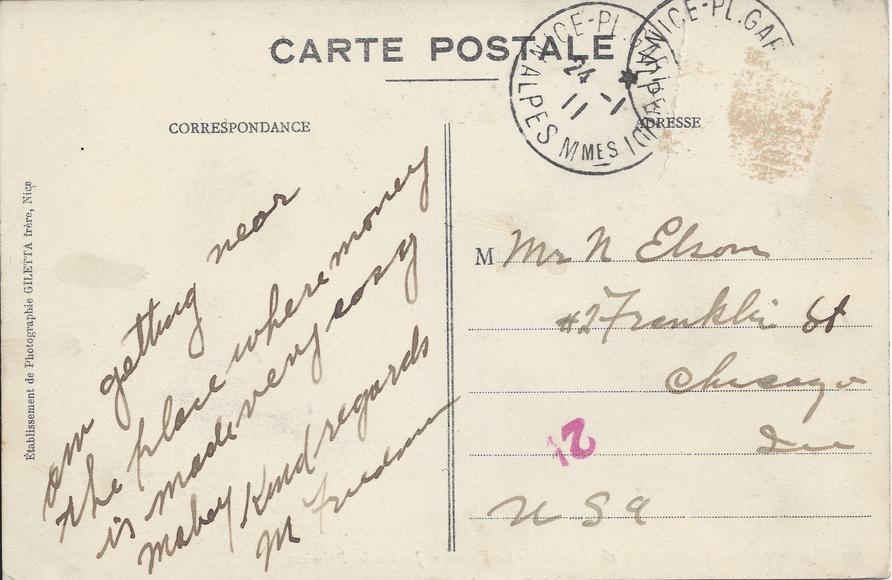 CARTE POSTALE
NICE-PL.GA
24
11 -1
ALPES MMES
NICE-PL.GAR
CORRESPONDANCE
ADRESSE
Établissement de Photographie GILETTA frère, Nice
am getting near
the place where money
is made very easy
mabey Kind regards
M Fredman
M Mr N Elson
#2 Franklin St
Chicago
Ill
12
USA